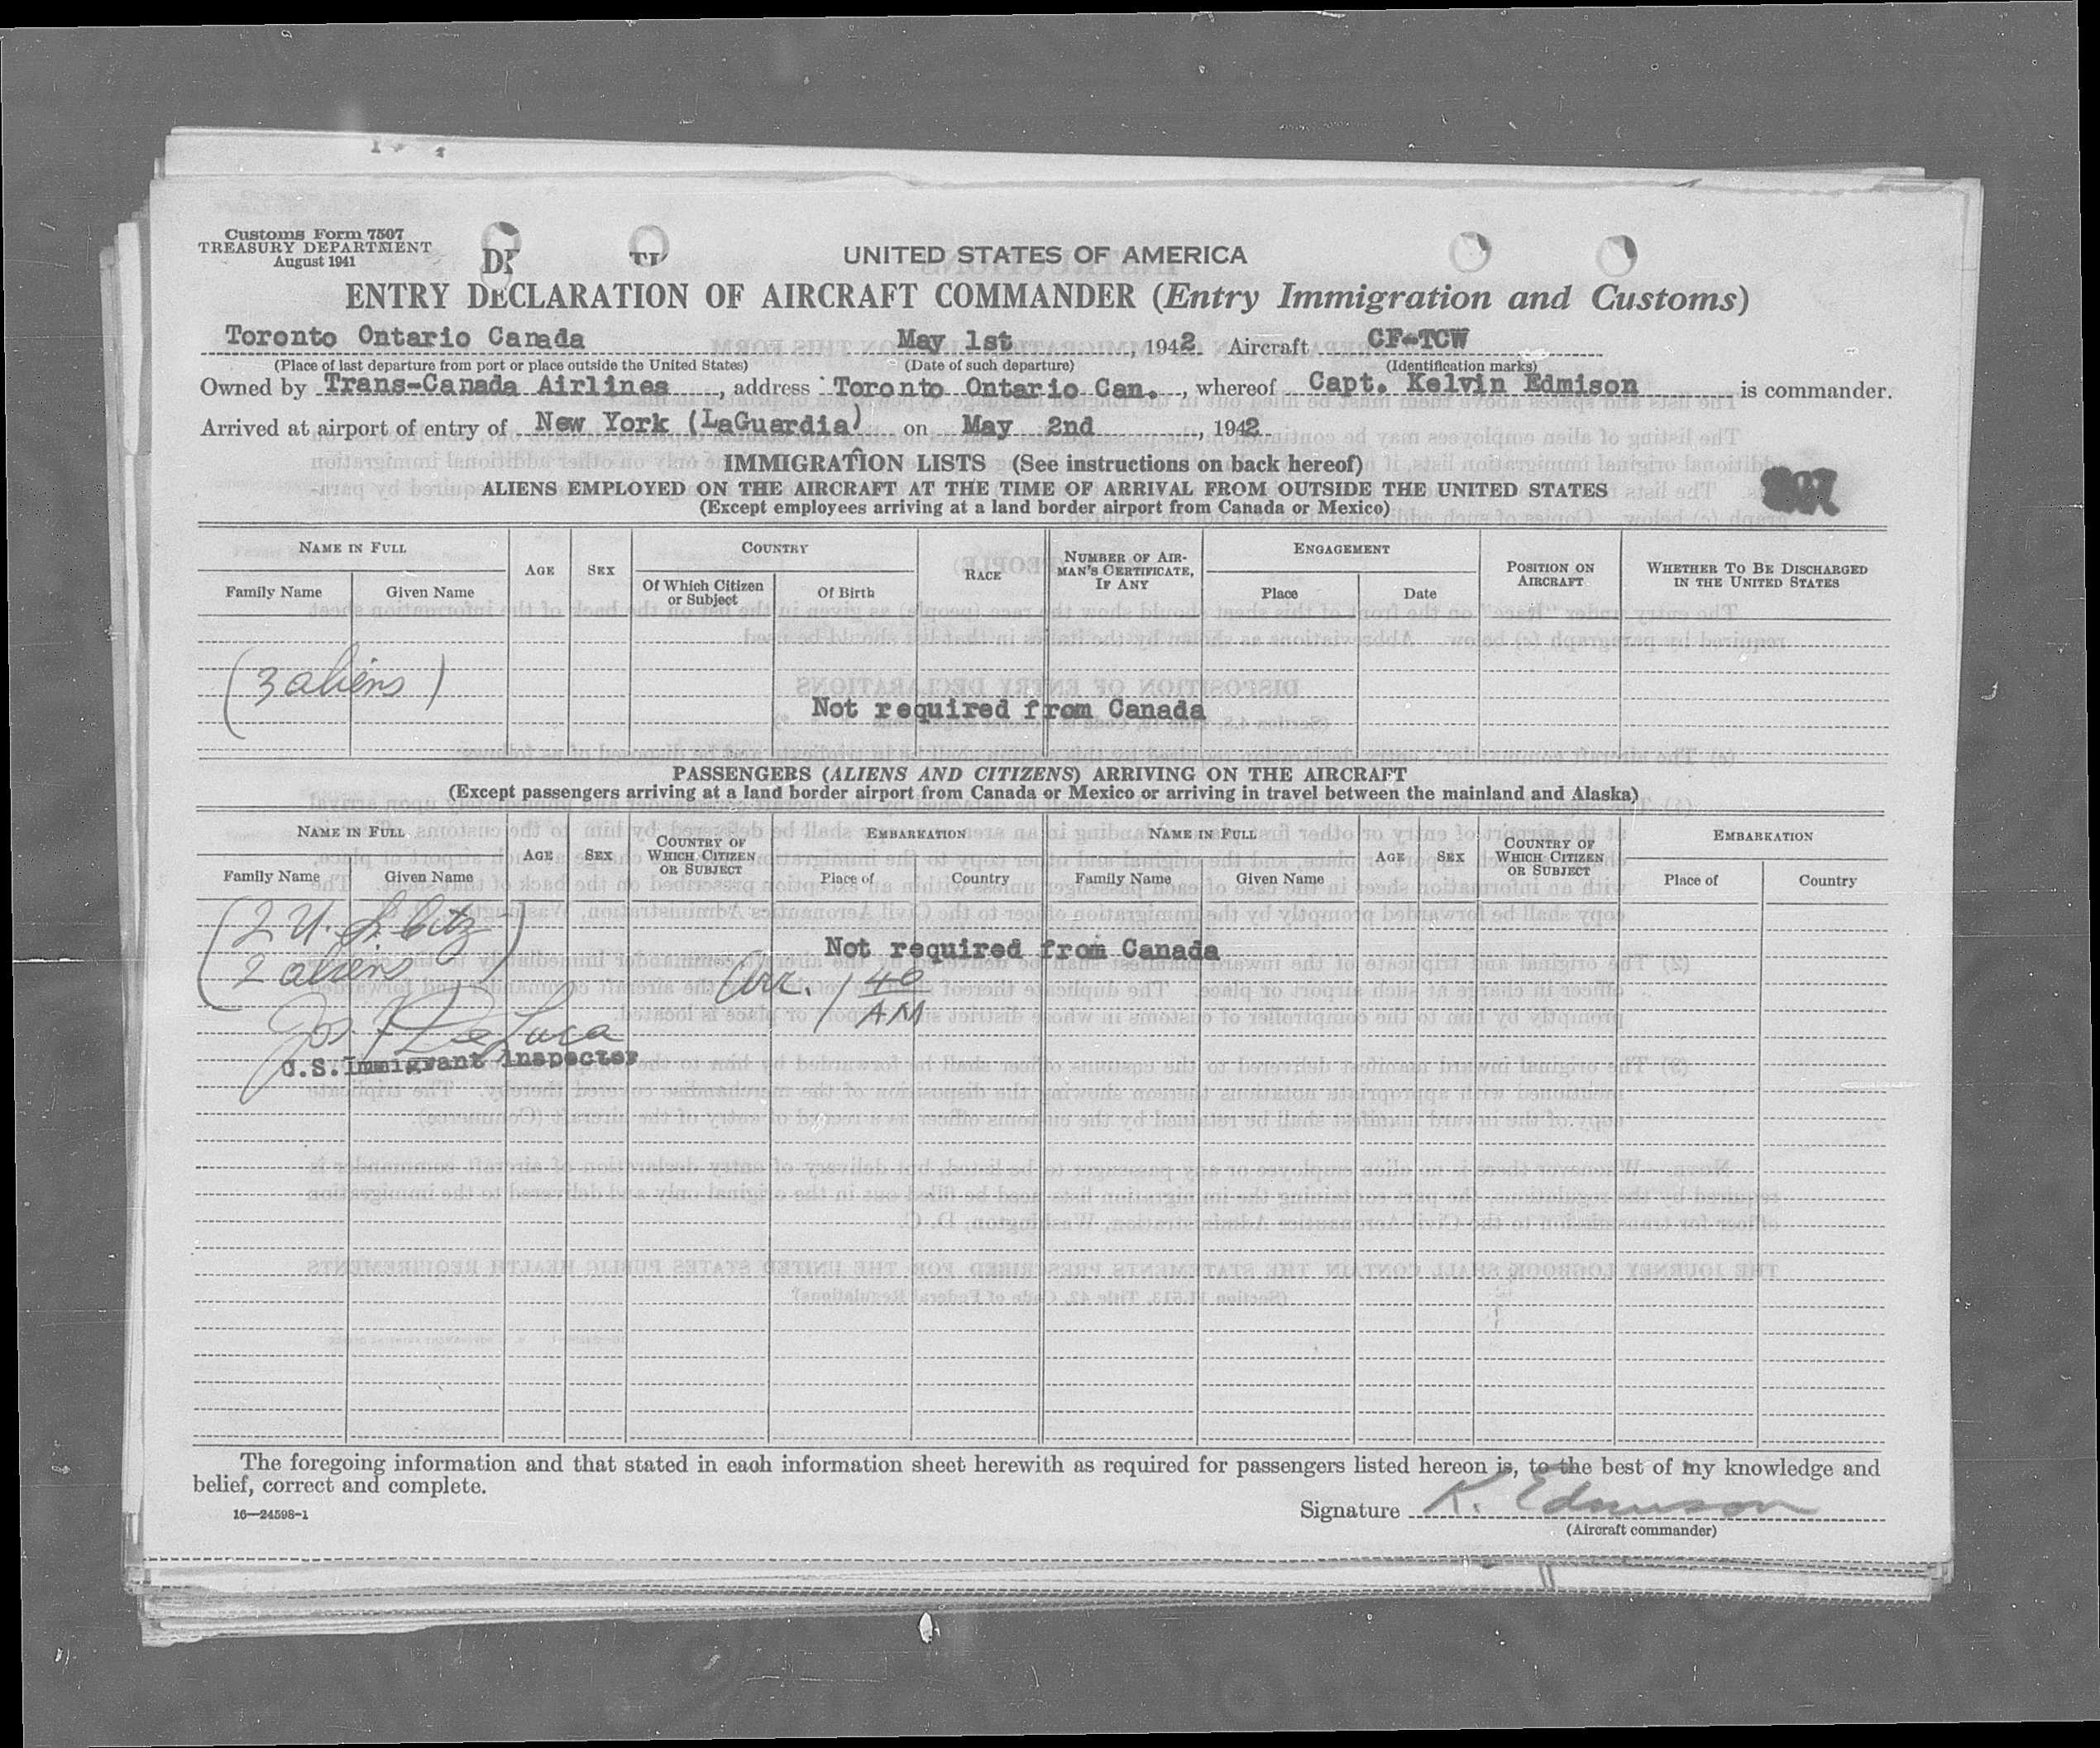 Customs Form 7507
TREASURY DEPARTMENT
August 1941
UNITED STATES OF AMERICA
ENTRY DECLARATION OF AIRCRAFT COMMANDER (Entry Immigration and Customs)
Toronto Ontario Canada May 1st, 1942. Aircraft CF-TCW
(Place of last departure from port or place outside the United States) (Date of such departure) (Identification marks)
Owned by Trans-Canada Airlines, address Toronto Ontario Can., whereof Capt. Kelvin Edmison is commander.
Arrived at airport of entry of New York (LaGuardia) on May 2nd, 1942.
IMMIGRATION LISTS (See instructions on back hereof)
ALIENS EMPLOYED ON THE AIRCRAFT AT THE TIME OF ARRIVAL FROM OUTSIDE THE UNITED STATES
(Except employees arriving at a land border airport from Canada or Mexico)
NAME IN FULL AGE SEX COUNTRY RACE NUMBER OF AIRMAN'S CERTIFICATE, IF ANY ENGAGEMENT POSITION ON AIRCRAFT WHETHER TO BE DISCHARGED IN THE UNITED STATES
Family Name Given Name Of Which Citizen or Subject Of Birth Place Date
(3 aliens)
Not required from Canada
PASSENGERS (ALIENS AND CITIZENS) ARRIVING ON THE AIRCRAFT
(Except passengers arriving at a land border airport from Canada or Mexico or arriving in travel between the mainland and Alaska)
NAME IN FULL AGE SEX COUNTRY OF WHICH CITIZEN OR SUBJECT EMBARKATION NAME IN FULL AGE SEX COUNTRY OF WHICH CITIZEN OR SUBJECT EMBARKATION
Family Name Given Name Place of Country Family Name Given Name Place of Country
(2 U. S. Citz
2 aliens)
Not required from Canada
Arr. 1 40 AM
Jos. De Luca
U.S. Immigrant Inspector
The foregoing information and that stated in each information sheet herewith as required for passengers listed hereon is, to the best of my knowledge and
belief, correct and complete.
16—24598-1
Signature K. Edmison
(Aircraft commander)